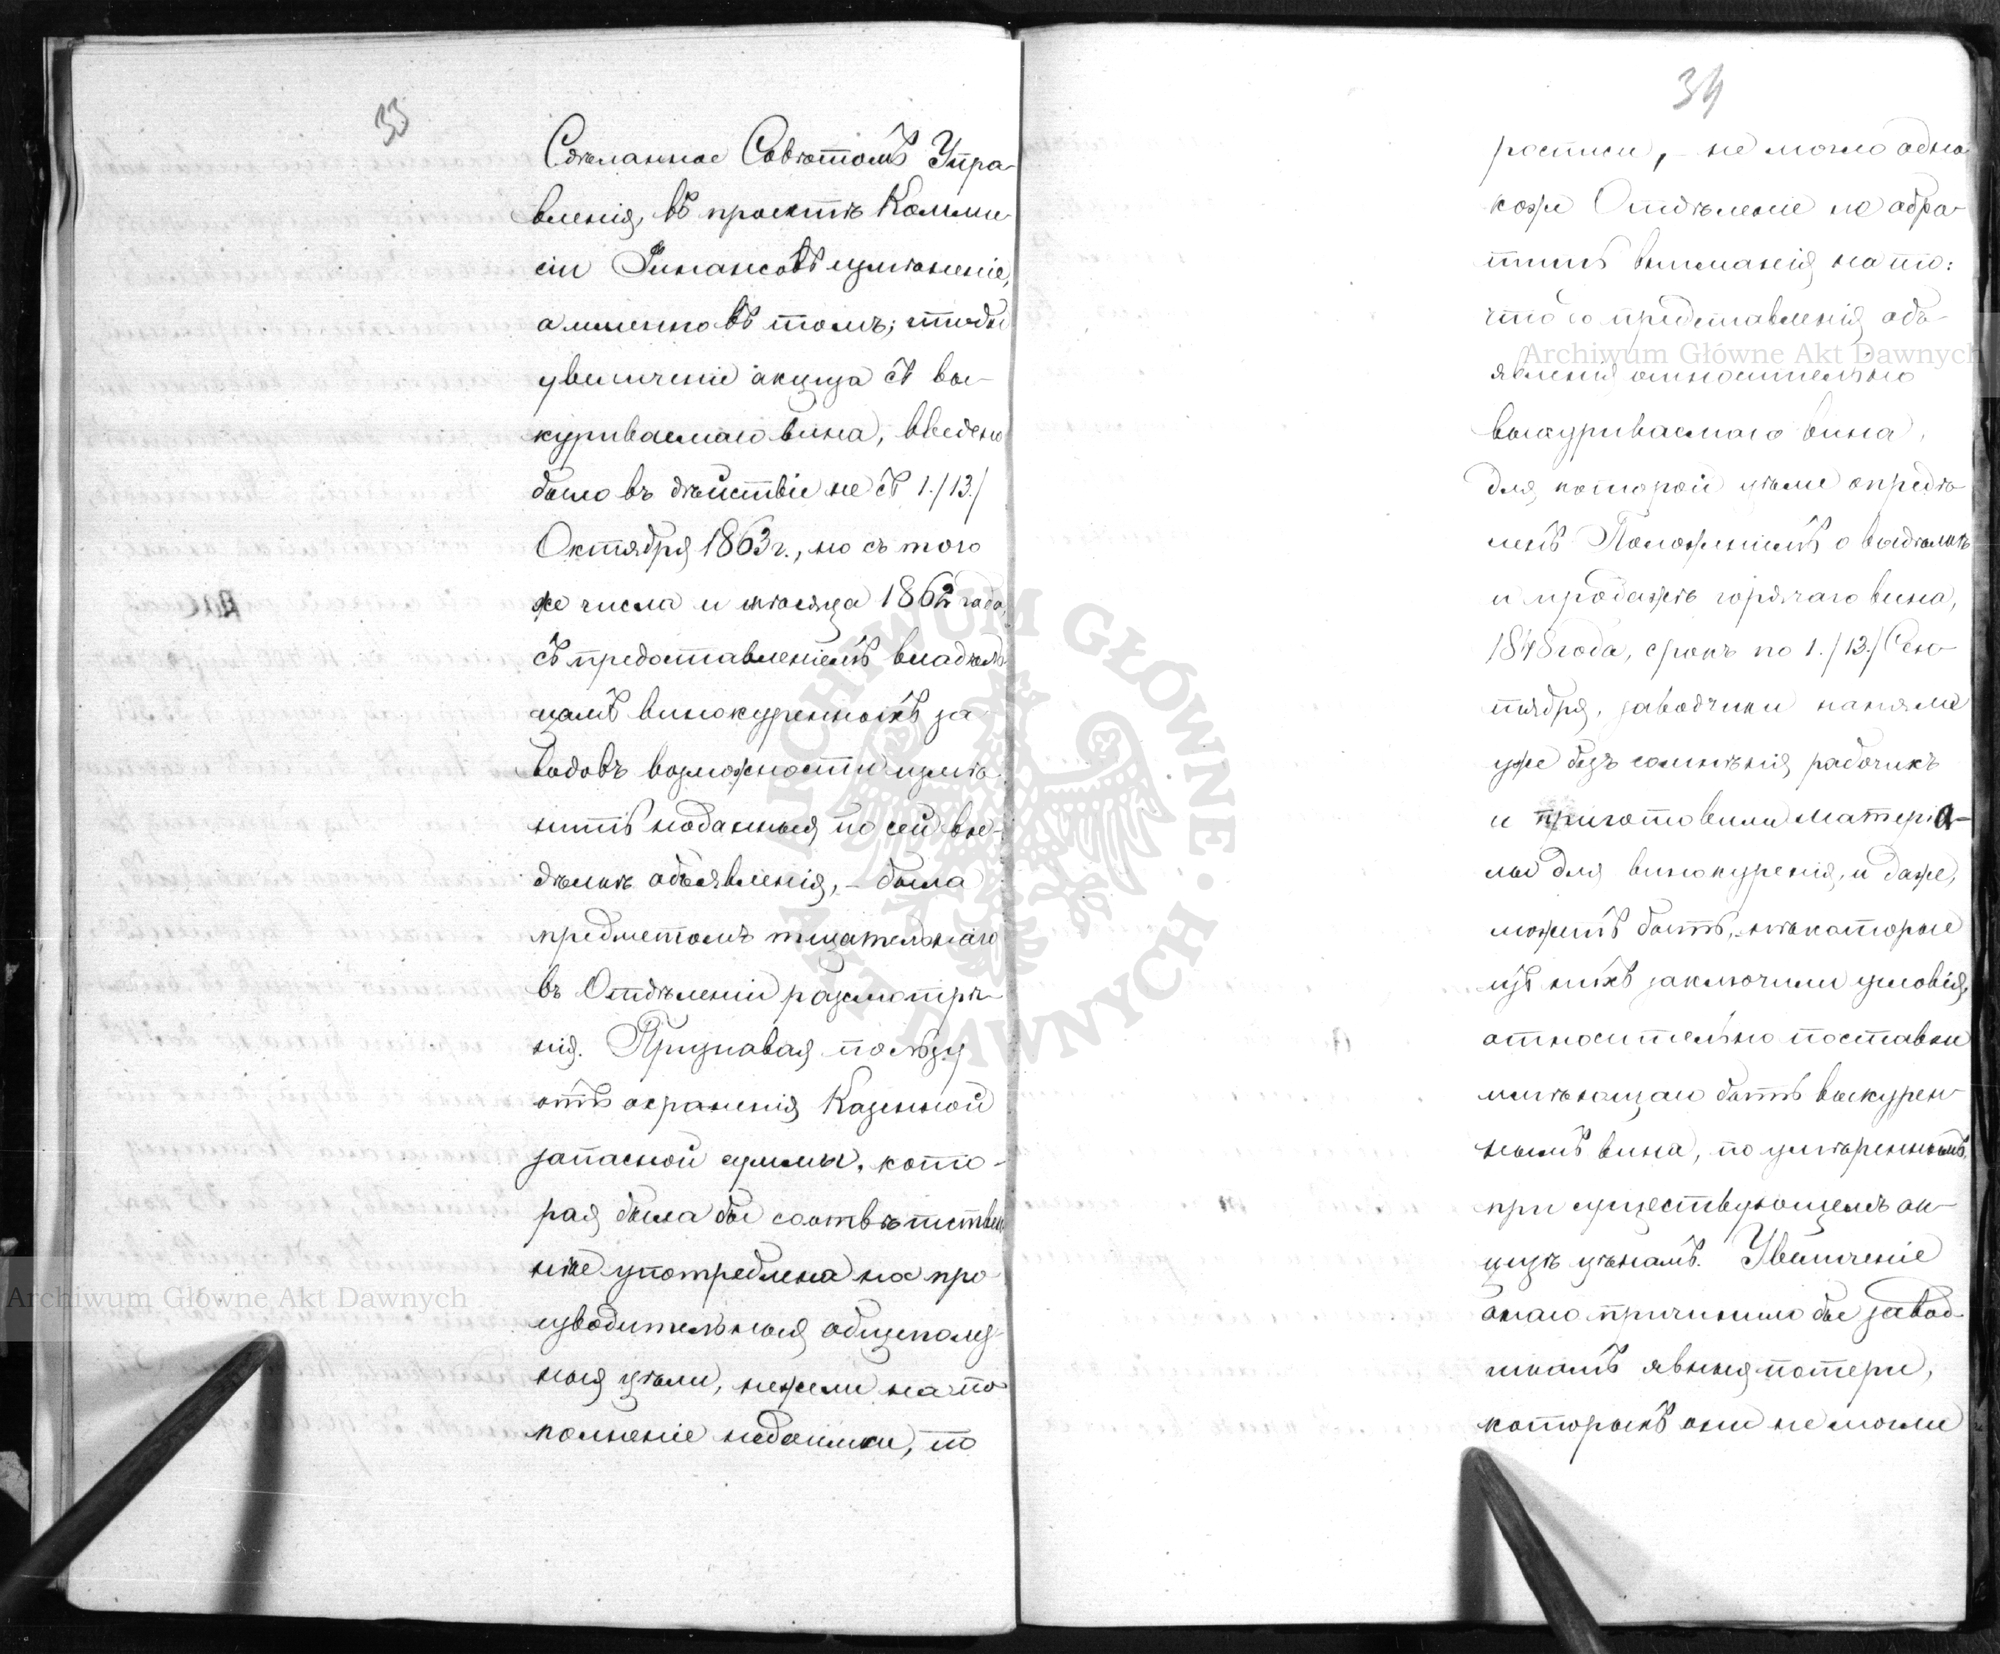 33
Сдѣланное Совѣтомъ Упра-
вленія, въ проектѣ Коммис-
сіи Финансовъ измѣненіе,
а именно въ томъ; чтобы
увеличеніе акциза съ вы-
куриваемаго вина, введено
было въ дѣйствіе не съ 1./13./
Октября 1863 г., но съ того
же числа и мѣсяца 1862 года,
съ предоставленіемъ владѣль-
цамъ винокуренныхъ за-
водовъ возможности измѣ-
нить поданныя по сей вы-
дѣлкѣ объявленія, – было
предметомъ тщательнаго
въ Отдѣленіи разсмотрѣ-
нія. Признавая пользу
отъ охраненія Казенной
запасной суммы, кото-
рая была бы соотвѣтствен-
нѣе употреблена на про-
изводительныя общеполез-
ныя цѣли, нежели на по-
полненіе недоимки, по
34
росписи, – не могло одна-
коже Отдѣленіе не обра-
тить вниманія на то:
что со представленія объ-
явленія относительно
выкуриваемаго вина,
для которой цѣли опредѣ-
ленъ Положеніемъ о выдѣлкѣ
и продажѣ горячаго вина,
1848 года, срокъ по 1./13./ Сен-
тября, заводчики наняли
уже безъ сомнѣнія рабочихъ
и приготовили матеріа-
лы для винокуренія, и даже,
можетъ быть, нѣкоторые
изъ нихъ заключили условія,
относительно поставки
имѣющаго быть выкурен-
нымъ вина, по умѣреннымъ,
при существующемъ ак-
цизѣ цѣнамъ. Увеличеніе
онаго причинило бы завод-
чикамъ явныя потери,
которыхъ они не могли
Archiwum Główne Akt Dawnych
Archiwum Główne Akt Dawnych
ARCHIWUM GŁÓWNE AKT DAWNYCH